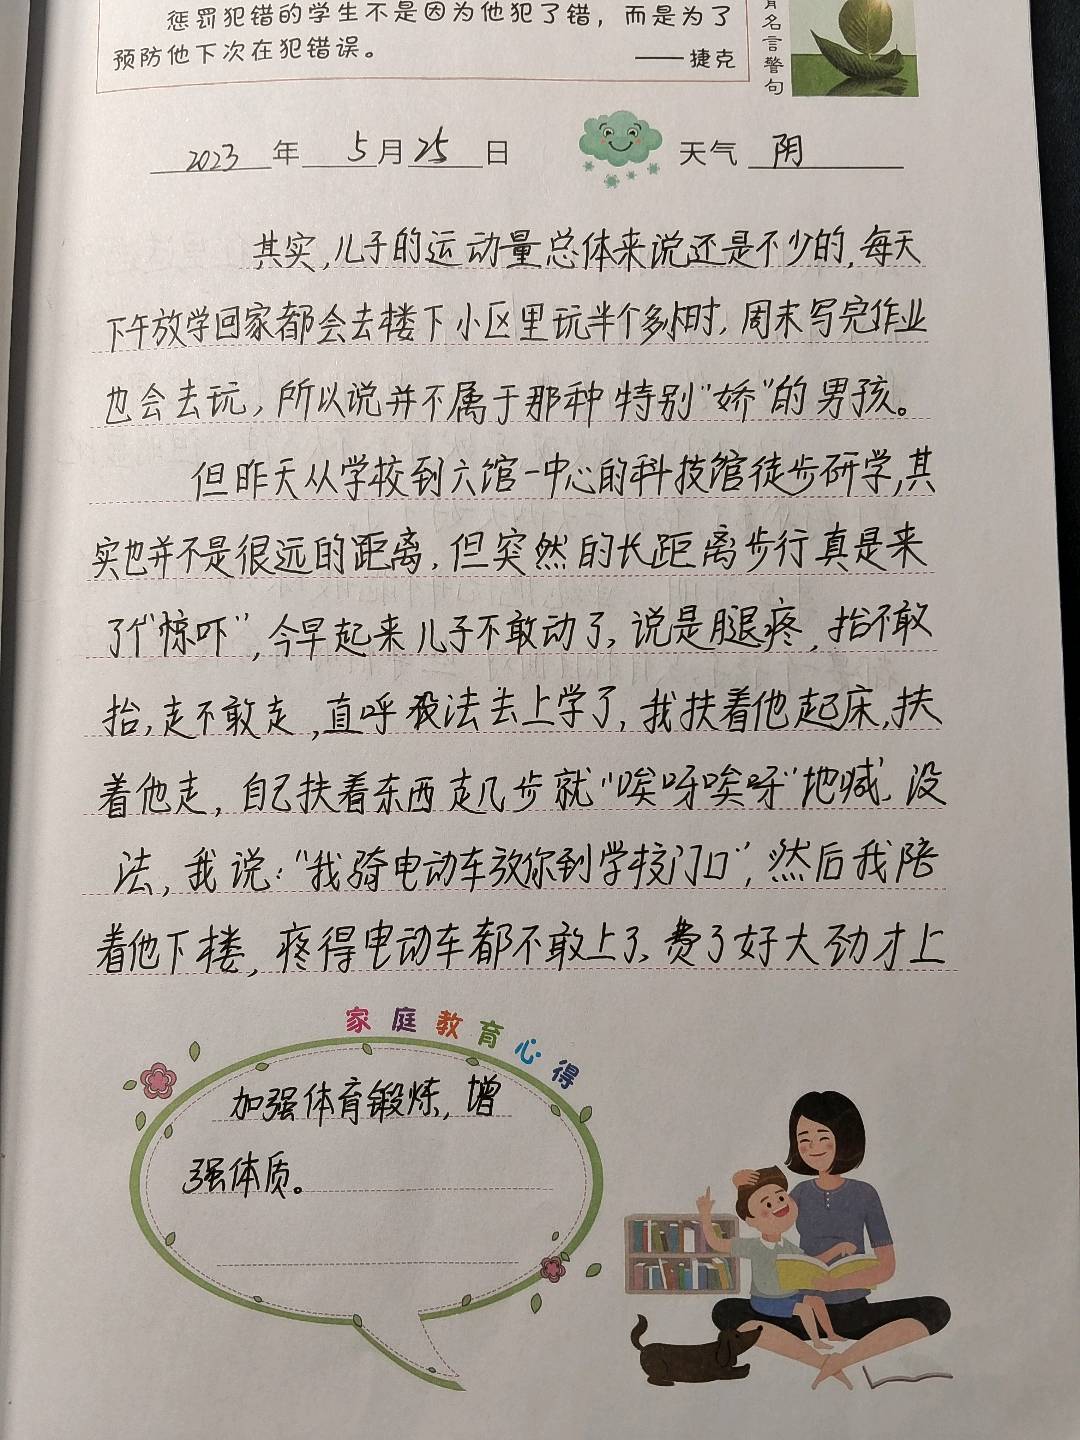 惩罚犯错的学生不是因为他犯了错，而是为了
预防他下次在犯错误。 ——捷克
名言警句
2023年5月25日 天气 阴
其实,儿子的运动量总体来说还是不少的,每天
下午放学回家都会去楼下小区里玩半个多小时,周末写完作业
也会去玩,所以说并不属于那种特别"娇"的男孩。
但昨天从学校到六馆一中心的科技馆徒步研学,其
实也并不是很远的距离,但突然的长距离步行真是来
了个"惊吓",今早起来儿子不敢动了,说是腿疼,抬不敢
抬,走不敢走,直呼没法去上学了,我扶着他起床,扶
着他走,自己扶着东西走几步就"唉呀唉呀"地喊,没
法,我说:"我骑电动车放你到学校门口",然后我陪
着他下楼,疼得电动车都不敢上了,费了好大劲才上
家庭教育心得
加强体育锻炼,增
强体质。